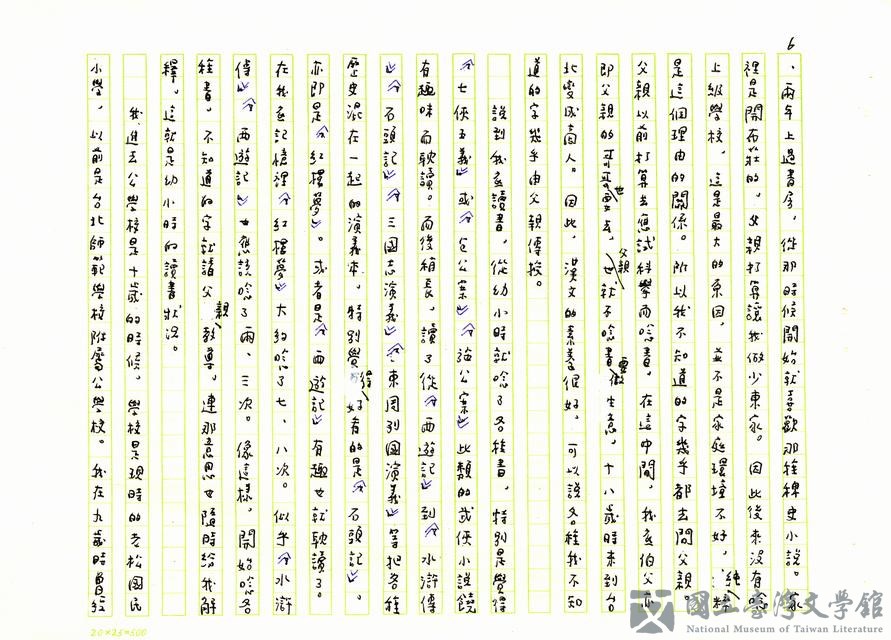 6
、兩年上過書房，從那時候開始就喜歡那種稗史小說。家
裡是開布莊的，父親打算讓我做少東家。因此後來沒有唸
上級學校，這是最大的原因，並不是家庭環境不好，純粹
是這個理由的關係。所以我不知道的字幾乎都去問父親。
父親以前打算去應試科舉而唸書，在這中間，我底伯父亦
即父親的哥哥也去，父親也就不唸書要做生意，十八歲時來到台
北變成商人。因此，漢文的素養很好，可以說各種我不知
道的字幾乎由父親傳授。
說到我底讀書，從幼小時就唸了各種書，特別是覺得
《七俠五義》或《包公案》《施公案》此類的武俠小說饒
有趣味而耽讀。而後稍長，讀了從《西遊記》到《水滸傳
》《石頭記》《三國志演義》《東周列國演義》等把各種
歷史混在一起的演義本，特別覺得好看的是《石頭記》。
亦即是《紅樓夢》。或者是《西遊記》有趣也就耽讀了。
在我底記憶裡《紅樓夢》大約唸了七、八次。似乎《水滸
傳》《西遊記》也應該唸了兩、三次。像這樣，開始唸各
種書，不知道的字就請父親教導，連那意思也隨時給我解
釋。這就是幼小時的讀書狀況。
我進去公學校是十歲的時候，學校是現時的老松國民
小學，以前是台北師範學校附屬公學校。我在九歲時曾經
20×25=500
國立臺灣文學館
National Museum of Taiwan Literature